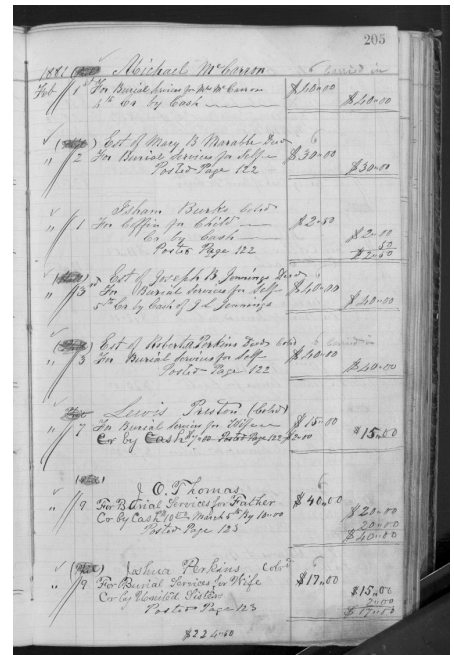 205
1881 Michael McCarron
Feb 1st For Burial Services for Mr McCarron $40.00
5th Cr by Cash $40.00
Est of Mary B Marable Decd
" 2 For Burial Services for Self $30.00
Posted Page 122 $30.00
Isham Burks Cold
" 1 For Coffin for Child $2.50
Cr by Cash $2.00
Posted Page 122 50
$2.50
Est of Joseph B. Jennings Decd
" 3rd For Burial Services for Self $40.00
5th Cr by Cash of J L Jennings $40.00
Est of Robert Perkins Decd Cold
" 3 For Burial Services for Self $40.00
Posted Page 122 $40.00
Lewis Preston (Cold)
" 7 For Burial Services for Wife $15.00
Cr by Cash Posted Page 122 $15.00
J O. Thomas
" 9 For Burial Services for Father $40.00
Cr by Cash 10th March 5th By 20.00 $20.00
Posted Page 123 20.00
$40.00
Joshua Perkins Cold
" 9 For Burial Services for Wife $17.00
Cr by United Sisters $15.00
Posted Page 123 2.00
$17.00
$224.50